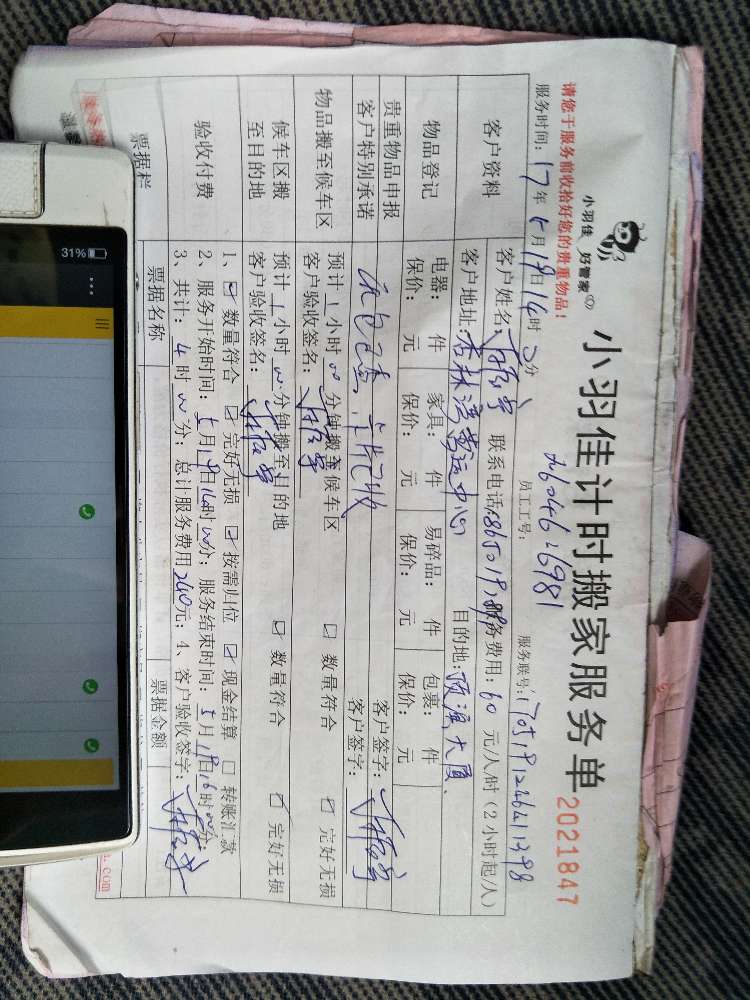 小羽佳 好管家
小羽佳计时搬家服务单
2021847
请您于服务前收拾好您的贵重物品!
员工工号: 26046 26981
服务联号: 170519124641398
服务时间: 17年5月19日14时 分
客户资料
客户姓名: 联系电话: 服务费用: 60 元/人/时 (2小时起/人)
客户地址: 杏林湾营运中心 目的地: 大厦
物品登记
电器: 件 家具: 件 易碎品: 件 包裹: 件
保价: 元 保价: 元 保价: 元 保价: 元
贵重物品申报
客户签字:
客户特别承诺
客户签字:
物品搬至候车区
预计 1 小时 00 分钟搬至候车区 数量符合 完好无损
客户验收签名:
候车区搬至目的地
预计 1 小时 00 分钟搬至目的地 数量符合 完好无损
客户验收签名:
验收付费
1、 数量符合 完好无损 按需归位 现金结算 转账汇款
2、服务开始时间: 5月19日14时00分; 服务结束时间: 5月19日16时00分;
3、共计: 4时00分; 总计服务费用240元; 4、客户验收签字:
票据栏
票据名称 票据金额
31%